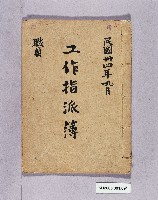 民國卅四年九月
工作指派簿
職員